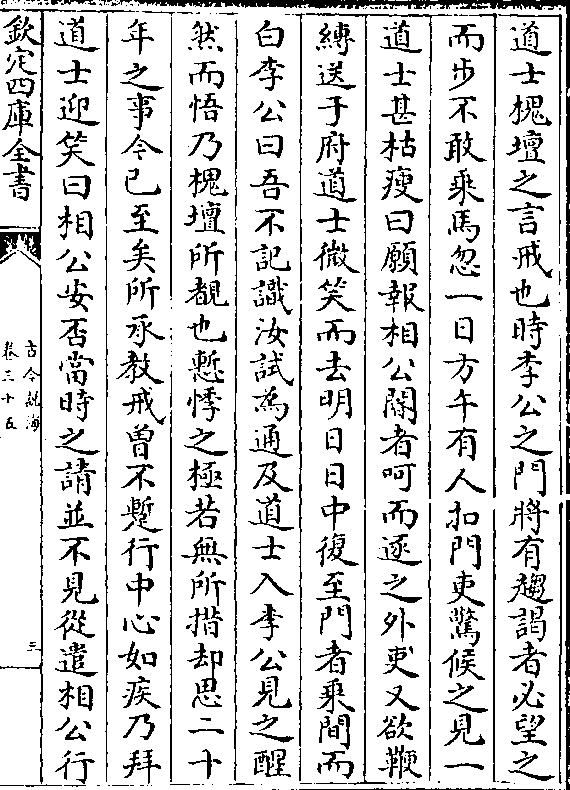 道士槐壇之言戒也時李公之門將有趨謁者必望之
而步不敢乘馬忽一日方午有人扣門吏驚候之見一
道士甚枯瘦曰願報相公閽者呵而逐之外吏又欲鞭
縛送于府道士微笑而去明日日中復至門者乘間而
白李公曰吾不記識汝試為通及道士入李公見之醒
然而悟乃槐壇所覩也慙悸之極若無所措却思二十
年之事今已至矣所承教戒曾不蹔行中心如疾乃拜
道士迎笑曰相公安否當時之請並不見從遣相公行
欽定四庫全書
古今說海
卷三十五
三